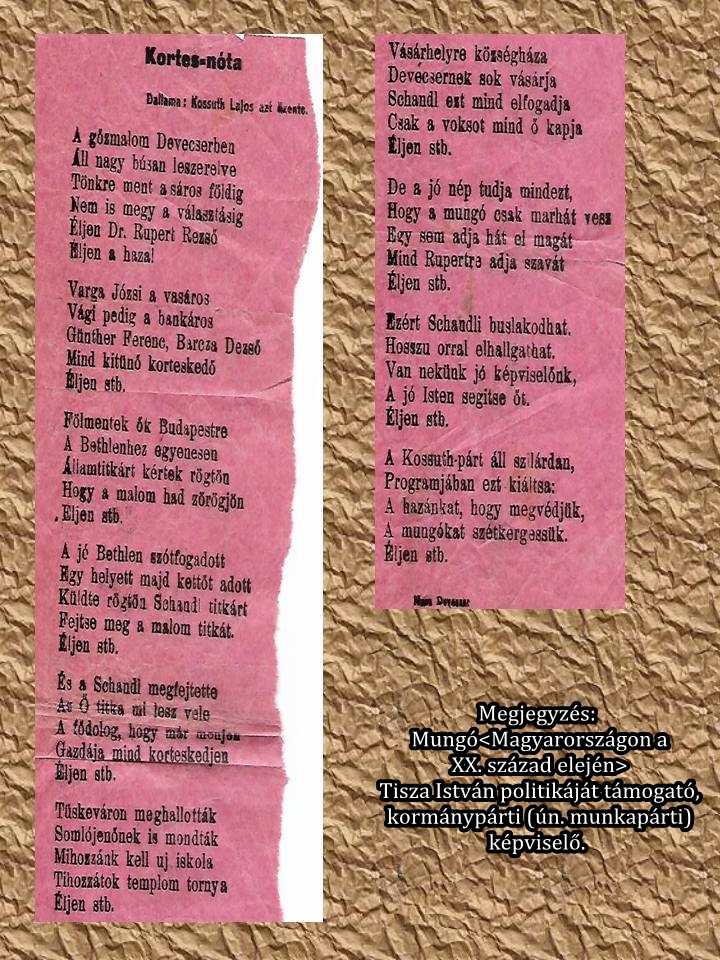 Kortes=nóta
Dallama: Kossuth Lajos azt üzente.
A gőzmalom Devecserben
Áll nagy búsan leszerelve
Tönkre ment a sáros földig
Nem is megy a választásig
Éljen Dr. Rupert Rezső
Éljen a haza!
Varga Józsi a vasáros
Vági pedig a bankáros
Günther Ferenc, Barcza Dezső
Mind kitünő korteskedő
Éljen stb.
Fölmentek ők Budapestre
A Bethlenhez egyenesen
Államtitkárt kértek rögtön
Hogy a malom had zörögjön
Éljen stb.
A jó Bethlen szótfogadott
Egy helyett majd kettőt adott
Küldte rögtön Schandl titkárt
Fejtse meg a malom titkát.
Éljen stb.
És a Schandl megfejtette
Az Ő titka mi lesz vele
A fődolog, hogy már monjan
Gazdája mind korteskedjen
Éljen stb.
Tüskeváron meghallották
Somlójenőnek is mondták
Mihozzánk kell uj iskola
Tihozzátok templom tornya
Éljen stb.
Vásárhelyre községháza
Devecsernek sok vásárja
Schandl ezt mind elfogadja
Csak a voksot mind ő kapja
Éljen stb.
De a jó nép tudja mindezt,
Hogy a mungó csak marhát vesz
Egy sem adja hát el magát
Mind Rupertre adja szavát
Éljen stb.
Ezért Schandli buslakodhat.
Hosszu orral elhallgathat.
Van nekünk jó képviselőnk,
A jó Isten segitse őt.
Éljen stb.
A Kossuth-párt áll szilárdan,
Programjában ezt kiáltsa:
A hazánkat, hogy megvédjük,
A mungókat szétkergessük.
Éljen stb.
Devecser
Megjegyzés:
Mungó<Magyarországon a
XX. század elején>
Tisza István politikáját támogató,
kormánypárti (ún. munkapárti)
képviselő.